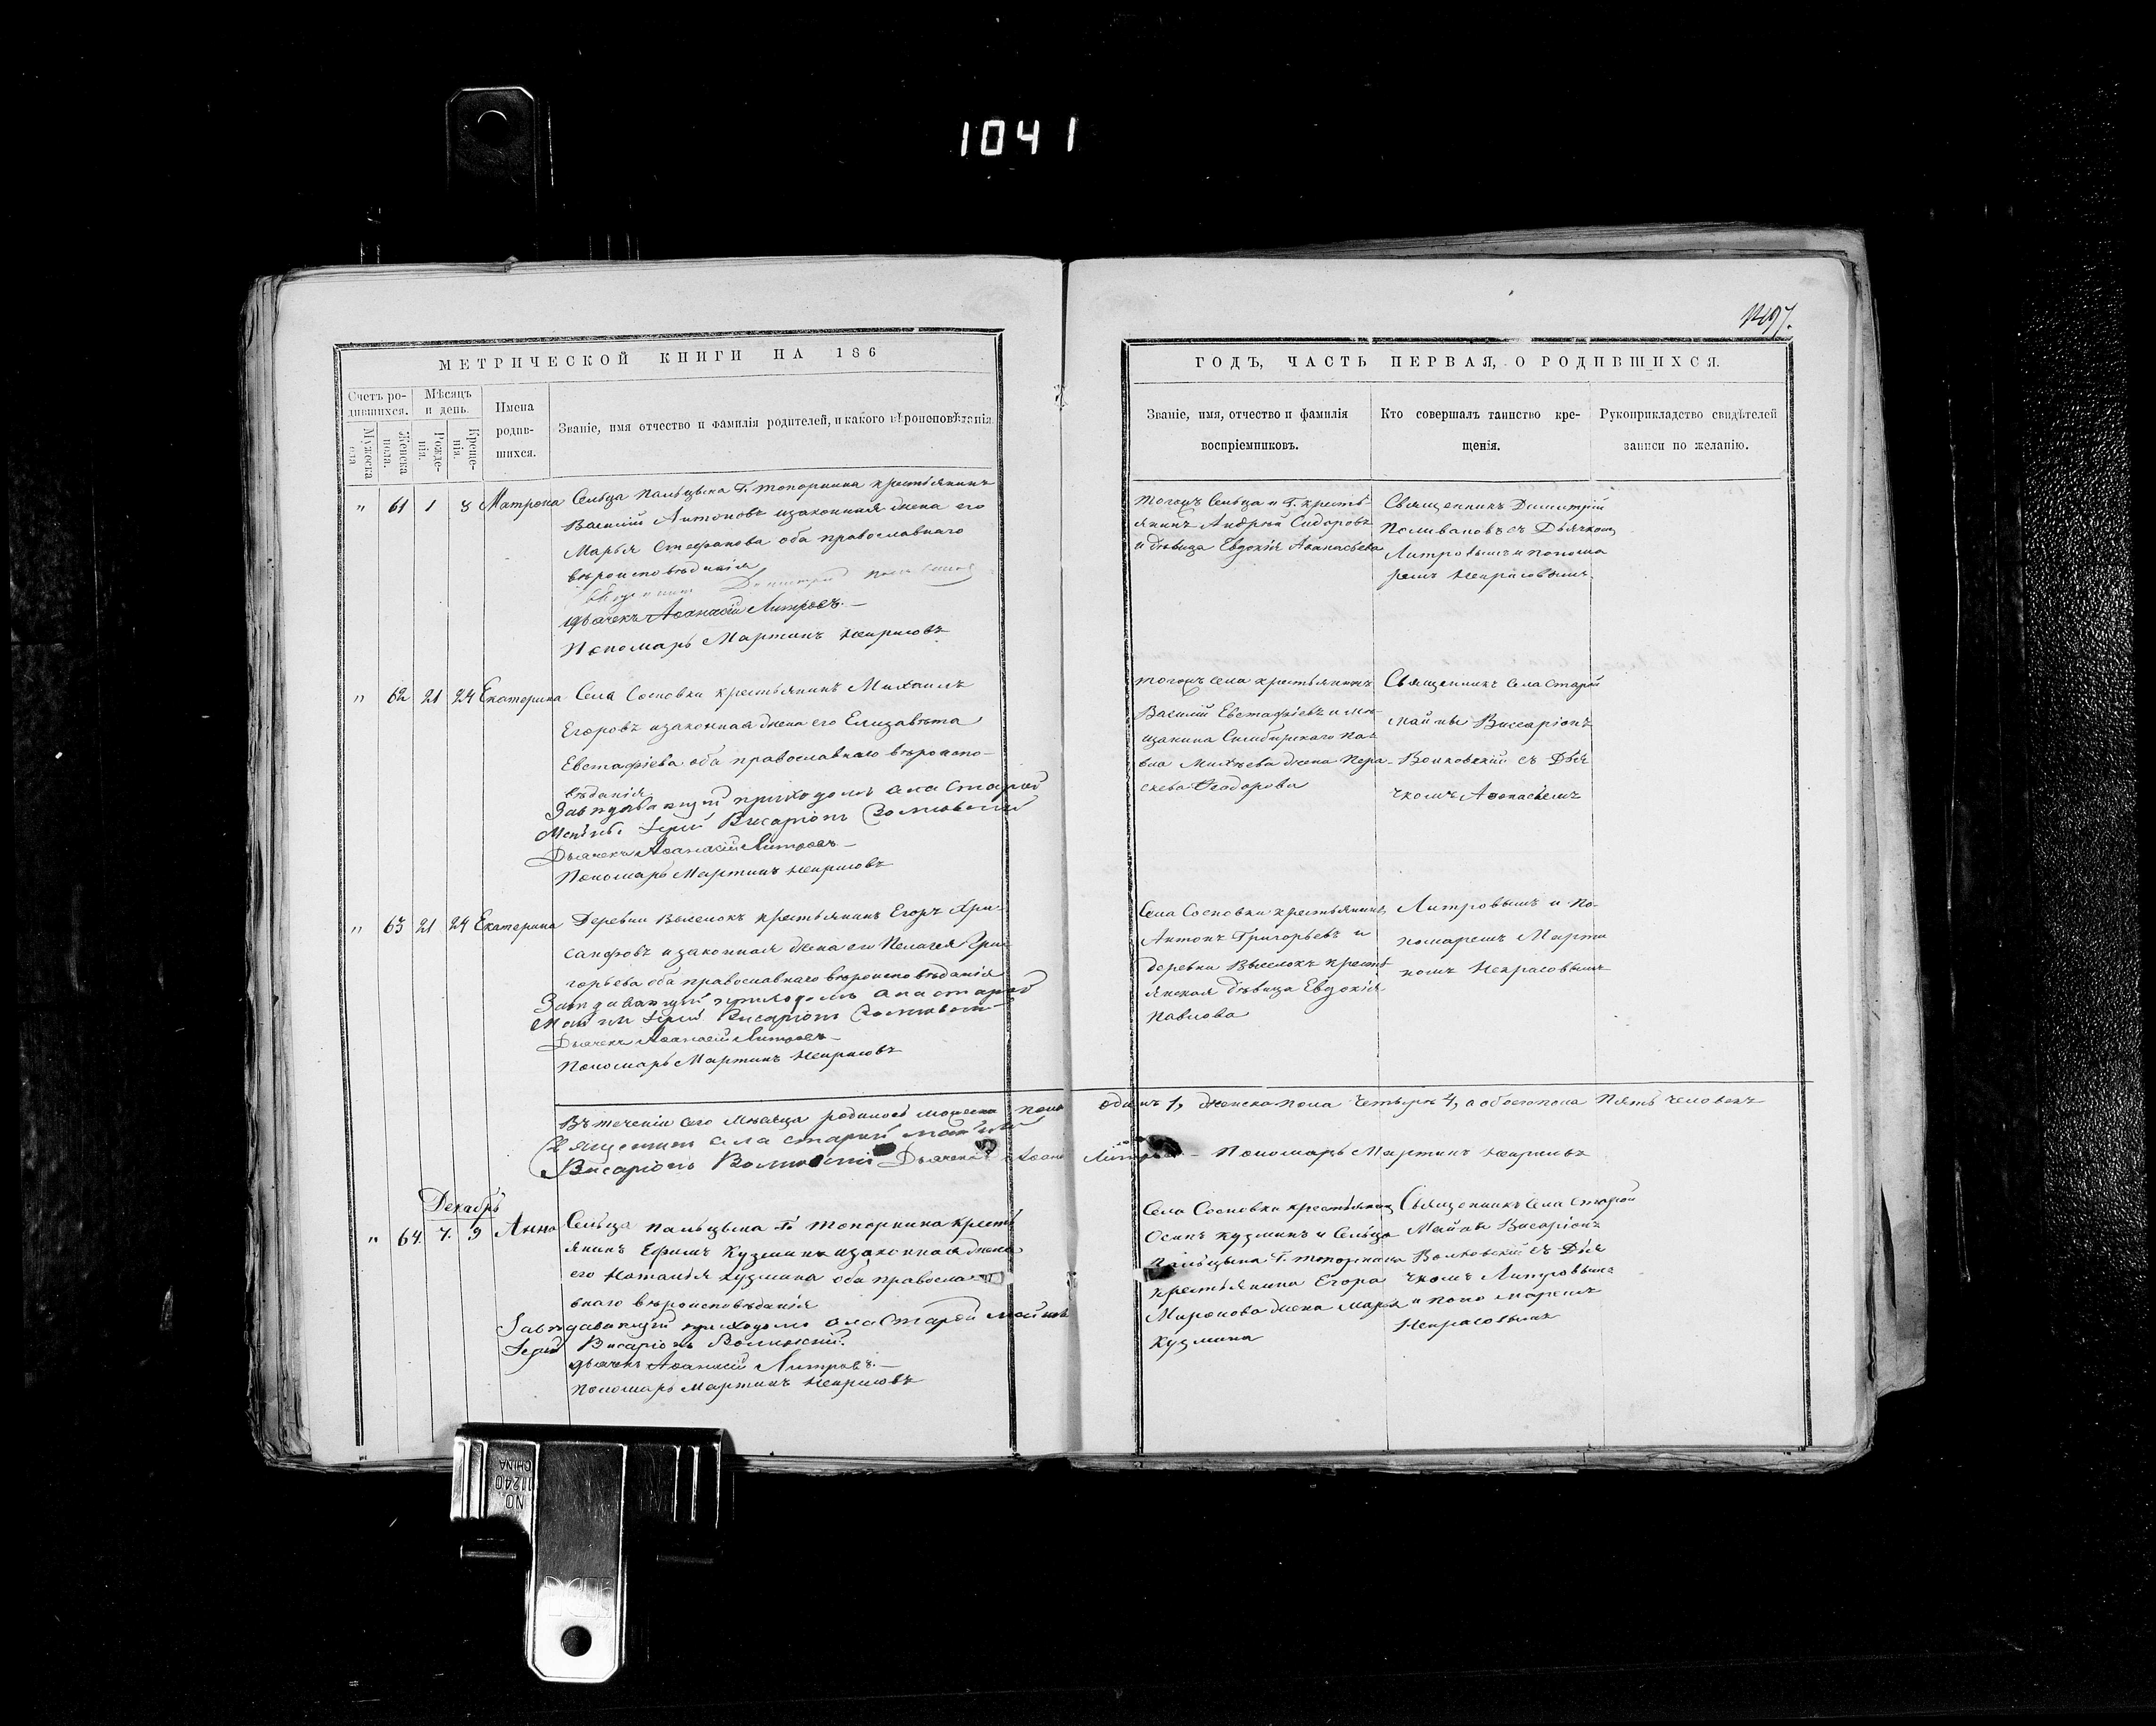 1041
1497.
МЕТРИЧЕСКОЙ КНИГИ НА 186
Счетъ родившихся.
Мѣсяцъ и день.
Имена родившихся.
Званіе, имя отчество и фамилія родителей, и какого вѣроисповѣданія.
Мужеска пола
Женска пола.
Рожденія.
Крещенія.
" 61 1 8 Матрона Сельца Пальцына Г. Топорнина крестьянинъ
Василій Антоновъ изаконная жена его
Марья Стефанова оба православнаго
вѣроисповѣданія
Дьячекъ Аѳанасій Митровъ.—
Пономарь Мартинъ Некрасовъ
" 62 21 24 Екатерина Села Сосновки крестьянинъ Михаилъ
Егоровъ изаконная жена его Елизавѣта
Евстафіева оба православнаго вѣроиспо-
вѣданія
Завѣдывающій приходомъ села Старой
Майны Іерей Висаріонъ
Дьячекъ Аѳанасій Митровъ—
Пономарь Мартинъ Некрасовъ
" 63 21 24 Екатерина Деревни Выселокъ крестьянинъ Егоръ Хри-
санфовъ изаконная жена его Пелагея Гри-
горьева оба православнаго вѣроисповѣданія
Завѣдавающій приходомъ села Старой
Майны Іерей Висаріонъ
Дьячекъ Аѳанасій Митровъ—
Пономарь Мартинъ Некрасовъ
Въ теченіи сего мѣсяца родилось мужеска пола одинъ 1, женска пола четыре 4, а обоего пола пять человекъ
Священникъ села Старой Майны
Висаріонъ Дьячекъ Пономарь Мартинъ Некрасовъ
Декабрь
" 64. 7. 9 Анна Сельца Пальцына Г. Топорнина кресть
янинъ Ефимъ Кузминъ изаконная жена
его Наталья Кузмина оба правосла-
внаго вѣроисповѣданія
Завѣдавающій приходомъ села Старой Майны
Іерей Висаріонъ
Дьячекъ Аѳанасій Митровъ.—
Пономарь Мартинъ Некрасовъ
ГОДЪ, ЧАСТЬ ПЕРВАЯ, О РОДИВШИХСЯ.
Званіе, имя, отчество и фамилія воспріемниковъ.
Кто совершалъ таинство крещенія.
Рукоприкладство свидѣтелей записи по желанію.
тогожъ Сельца и Г. кресть-
янинъ Андрей Сидоровъ
и дѣвица Евдокія Аѳанасьева
Священникъ Димитрій
Поливановъ съ Дьячкомъ
Митровымъ и понома
ремъ Некрасовымъ.
тогожъ села крестьянинъ
Василій Евстафіевъ и мѣ-
щанина Симбирскаго Па-
вла Михѣева жена Пара-
скева Ѳеодорова
Священникъ Села Старой
Майны Висаріонъ
съ Дья
чкомъ Аѳанасьемъ
Села Сосновки крестьянинъ
Антонъ Григорьевъ и
деревни Выселокъ кресть
янская дѣвица Евдокія
Павлова
Митровымъ и По-
номаремъ Марти
номъ Некрасовымъ
Села Сосновки крестьянинъ
Осипъ Кузминъ и Сельца
Пальцына Г. Топорнина
крестьянина Егора
Миронова жена Марья
Кузмина
Священникъ Села Старой
Майны Висаріонъ
съ Дья
чкомъ Митровымъ
и пономаремъ
Некрасовымъ
NO 11240
CHINA